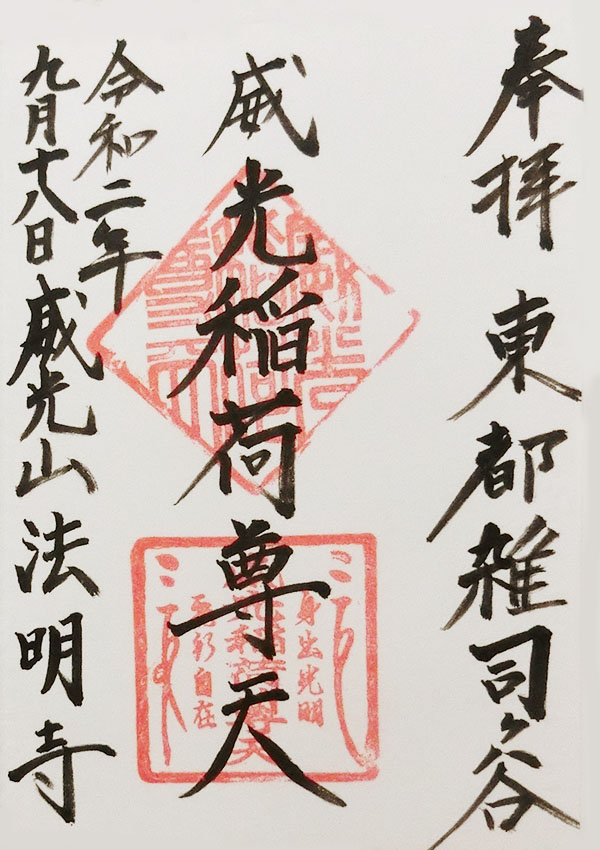 奉拝 東都雑司ヶ谷
威光稲荷尊天
令和二年
九月十八日 威光山法明寺
身出光明
威光稲荷尊天